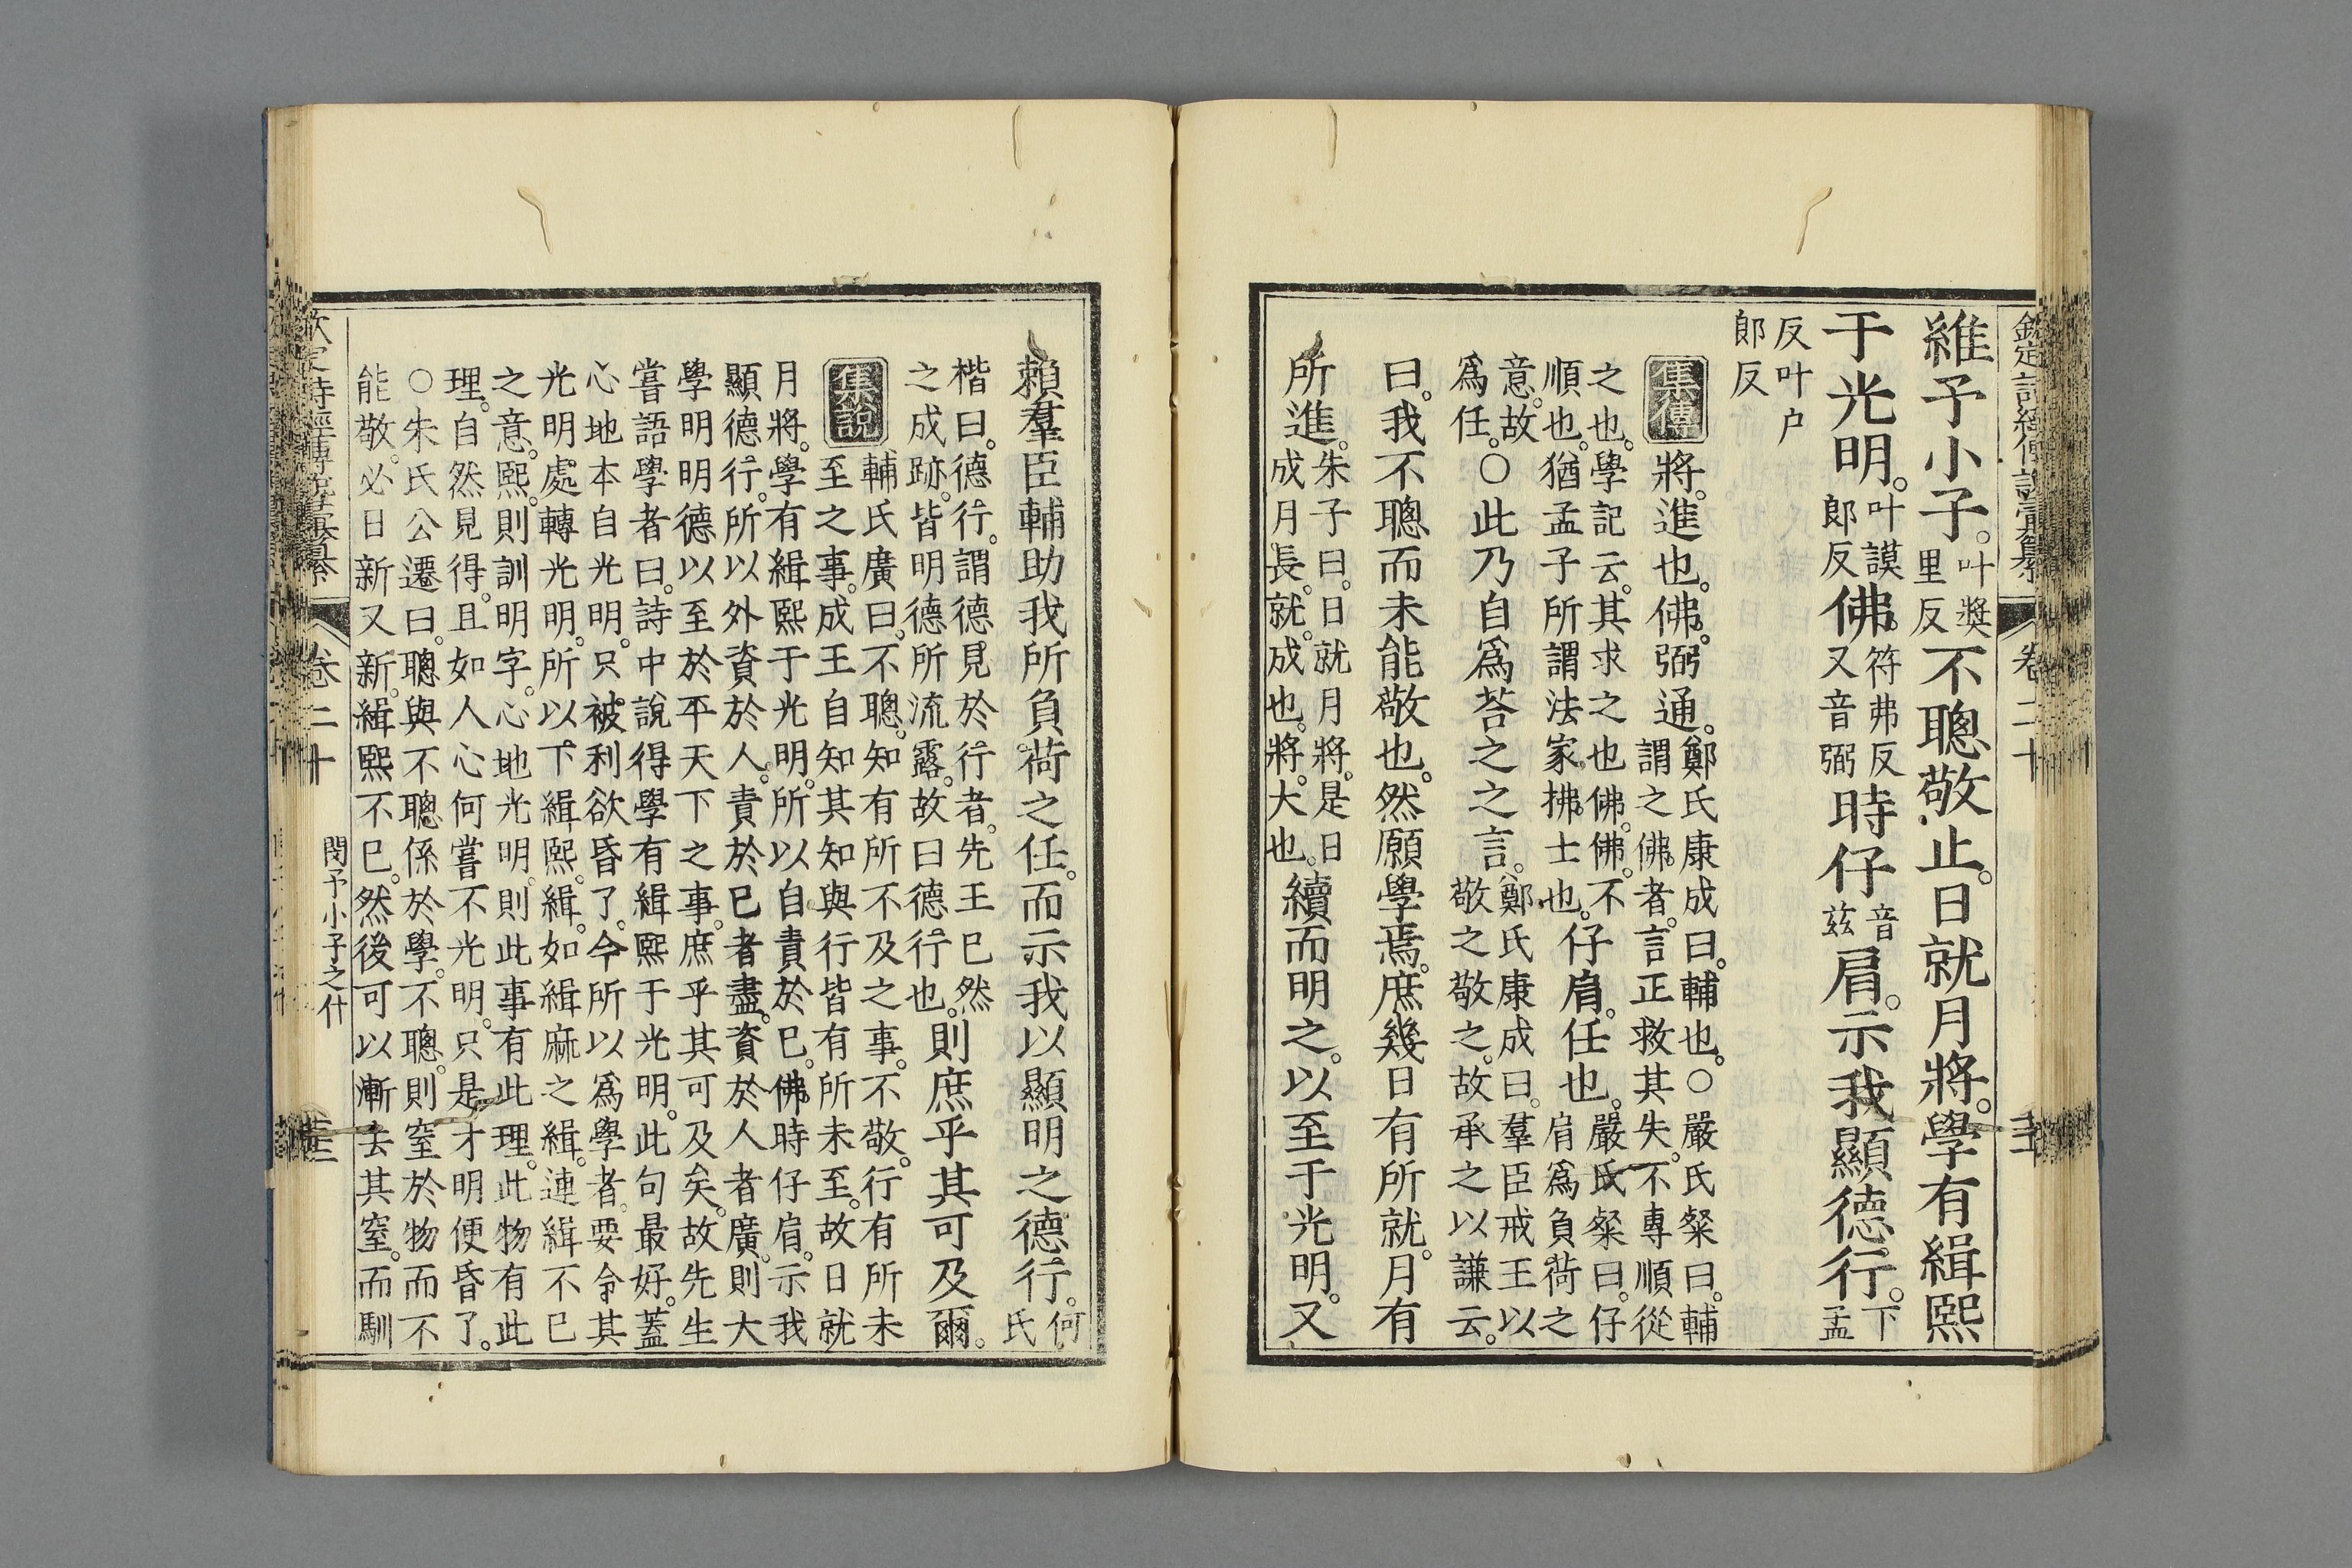 維予小子。叶獎里反不聰敬止。日就月將。學有緝熙
于光明。叶謨郎反佛。符弗反又音弼時仔音兹肩。示我顯德行。下孟
反叶户郎反
集傳 將。進也。佛。弼通。鄭氏康成曰。輔也。○嚴氏粲曰。輔謂之佛者。言正救其失。不專順從
之也。學記云。其求之也佛。佛。不順也。猶孟子所謂法家拂士也。仔肩。任也。嚴氏粲曰。仔肩爲負荷之
意。故爲任。○此乃自爲荅之之言。鄭氏康成曰。羣臣戒王以敬之敬之。故承之以謙云。
曰。我不聰而未能敬也。然願學焉。庶幾日有所就。月有
所進。朱子曰。日就月將。是日成月長。就。成也。將。大也。續而明之。以至于光明。又
賴羣臣輔助我所負荷之任。而示我以顯明之德行。何氏
楷曰。德行。謂德見於行者。先王已然之成跡。皆明德所流露。故曰德行也。則庶乎其可及爾。
集說 輔氏廣曰。不聰。知有所不及之事。不敬。行有所未至之事。成王自知其知與行皆有所未至。故日就
月將。學有緝熙于光明。所以自責於已。佛時仔肩。示我
顯德行。所以外資於人。責於已者盡。資於人者廣。則大
學明明德以至於平天下之事。庶乎其可及矣。故先生
嘗語學者曰。詩中說得學有緝熙于光明。此句最好。蓋
心地本自光明。只被利欲昏了。今所以爲學者。要令其
光明處轉光明。所以下緝熙。緝。如緝麻之緝。連緝不已
之意。熙。則訓明字。心地光明。則此事有此理。此物有此
理。自然見得。且如人心何嘗不光明。只是才明便昏了。
○朱氏公遷曰。聰與不聰係於學。不聰。則窒於物而不
能敬。必日新又新。緝熙不已。然後可以漸去其窒。而馴
欽定詩經傳說彙纂 卷二十 閔予小子之什